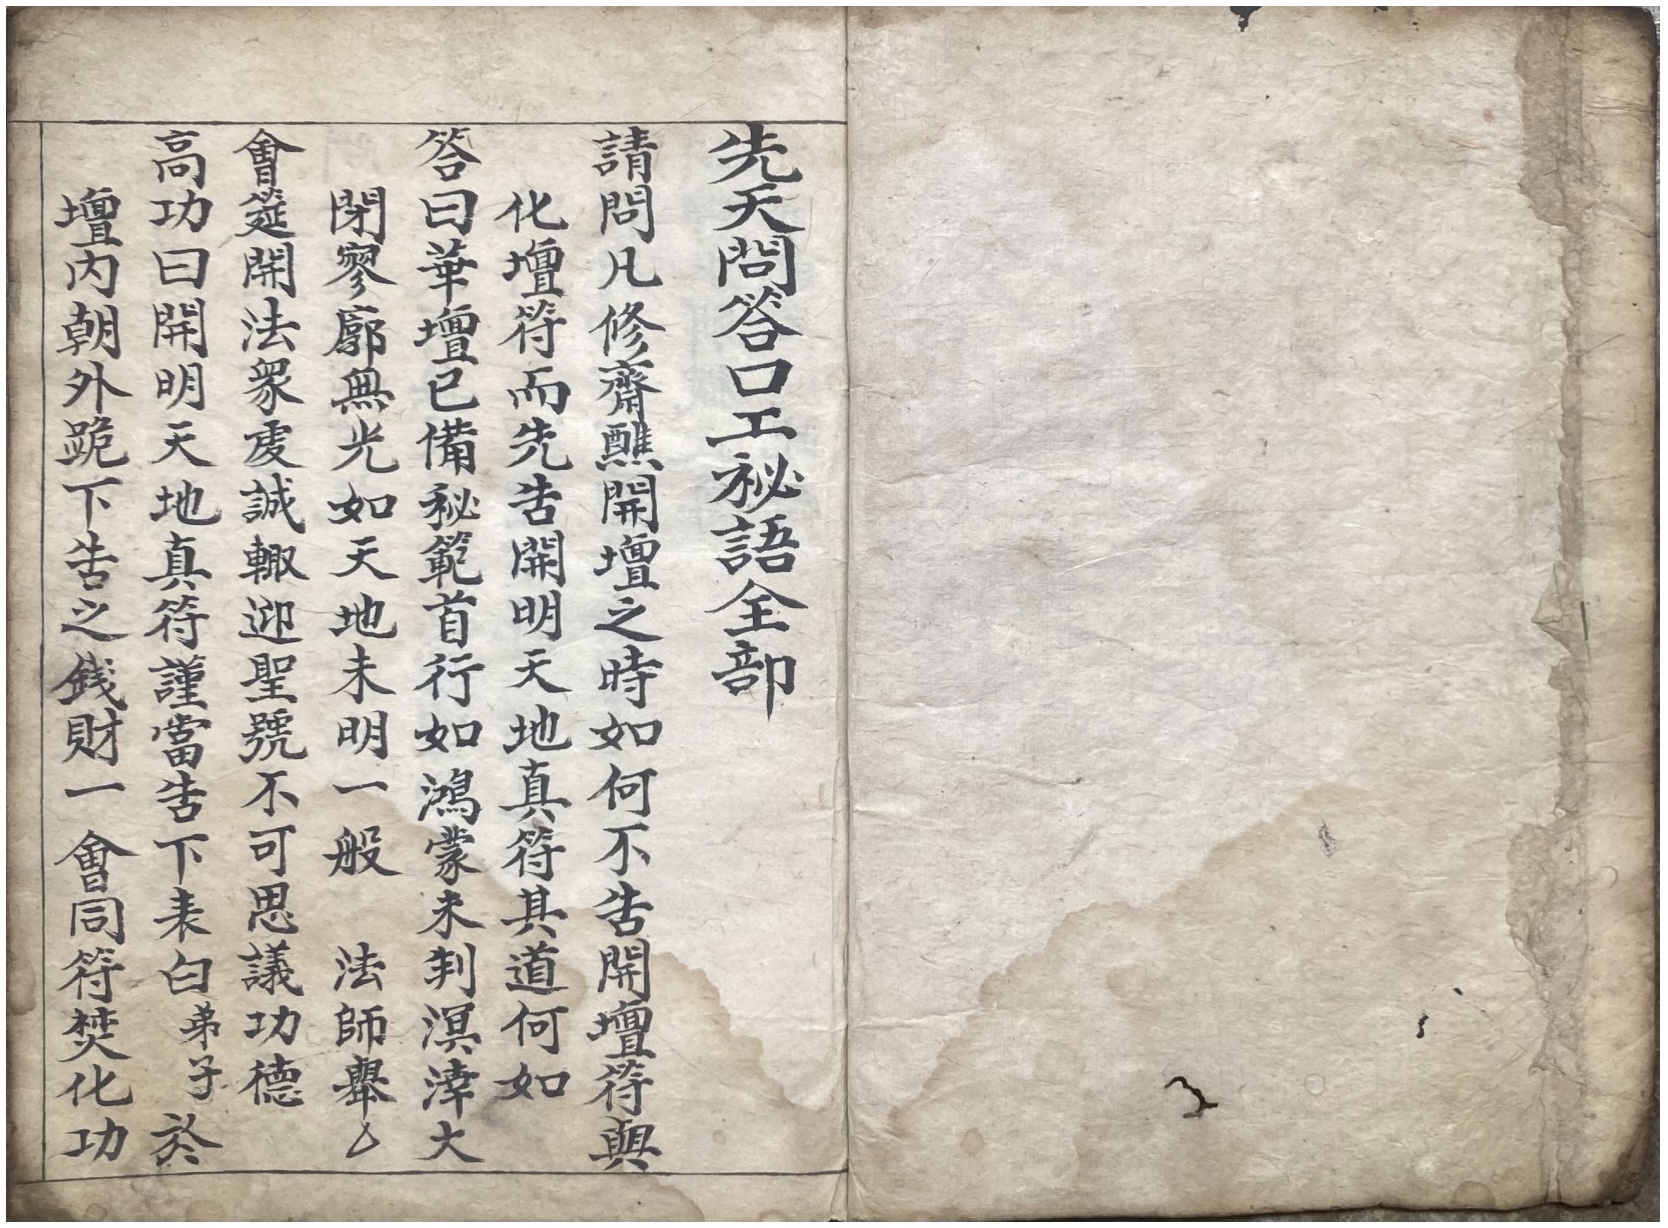 先天問答口工祕語全部
請問凡修齋醮開壇之時如何不告開壇符與
化壇符而先告開明天地真符其道何如
答曰華壇已備秘範首行如鴻蒙未判溟涬大
閉寥廓無光如天地未明一般 法師舉
會筵開法眾虔誠輙迎聖號不可思議功德
高功曰開明天地真符謹當告下表白弟子於
壇內朝外跪下告之錢財一會同符焚化功